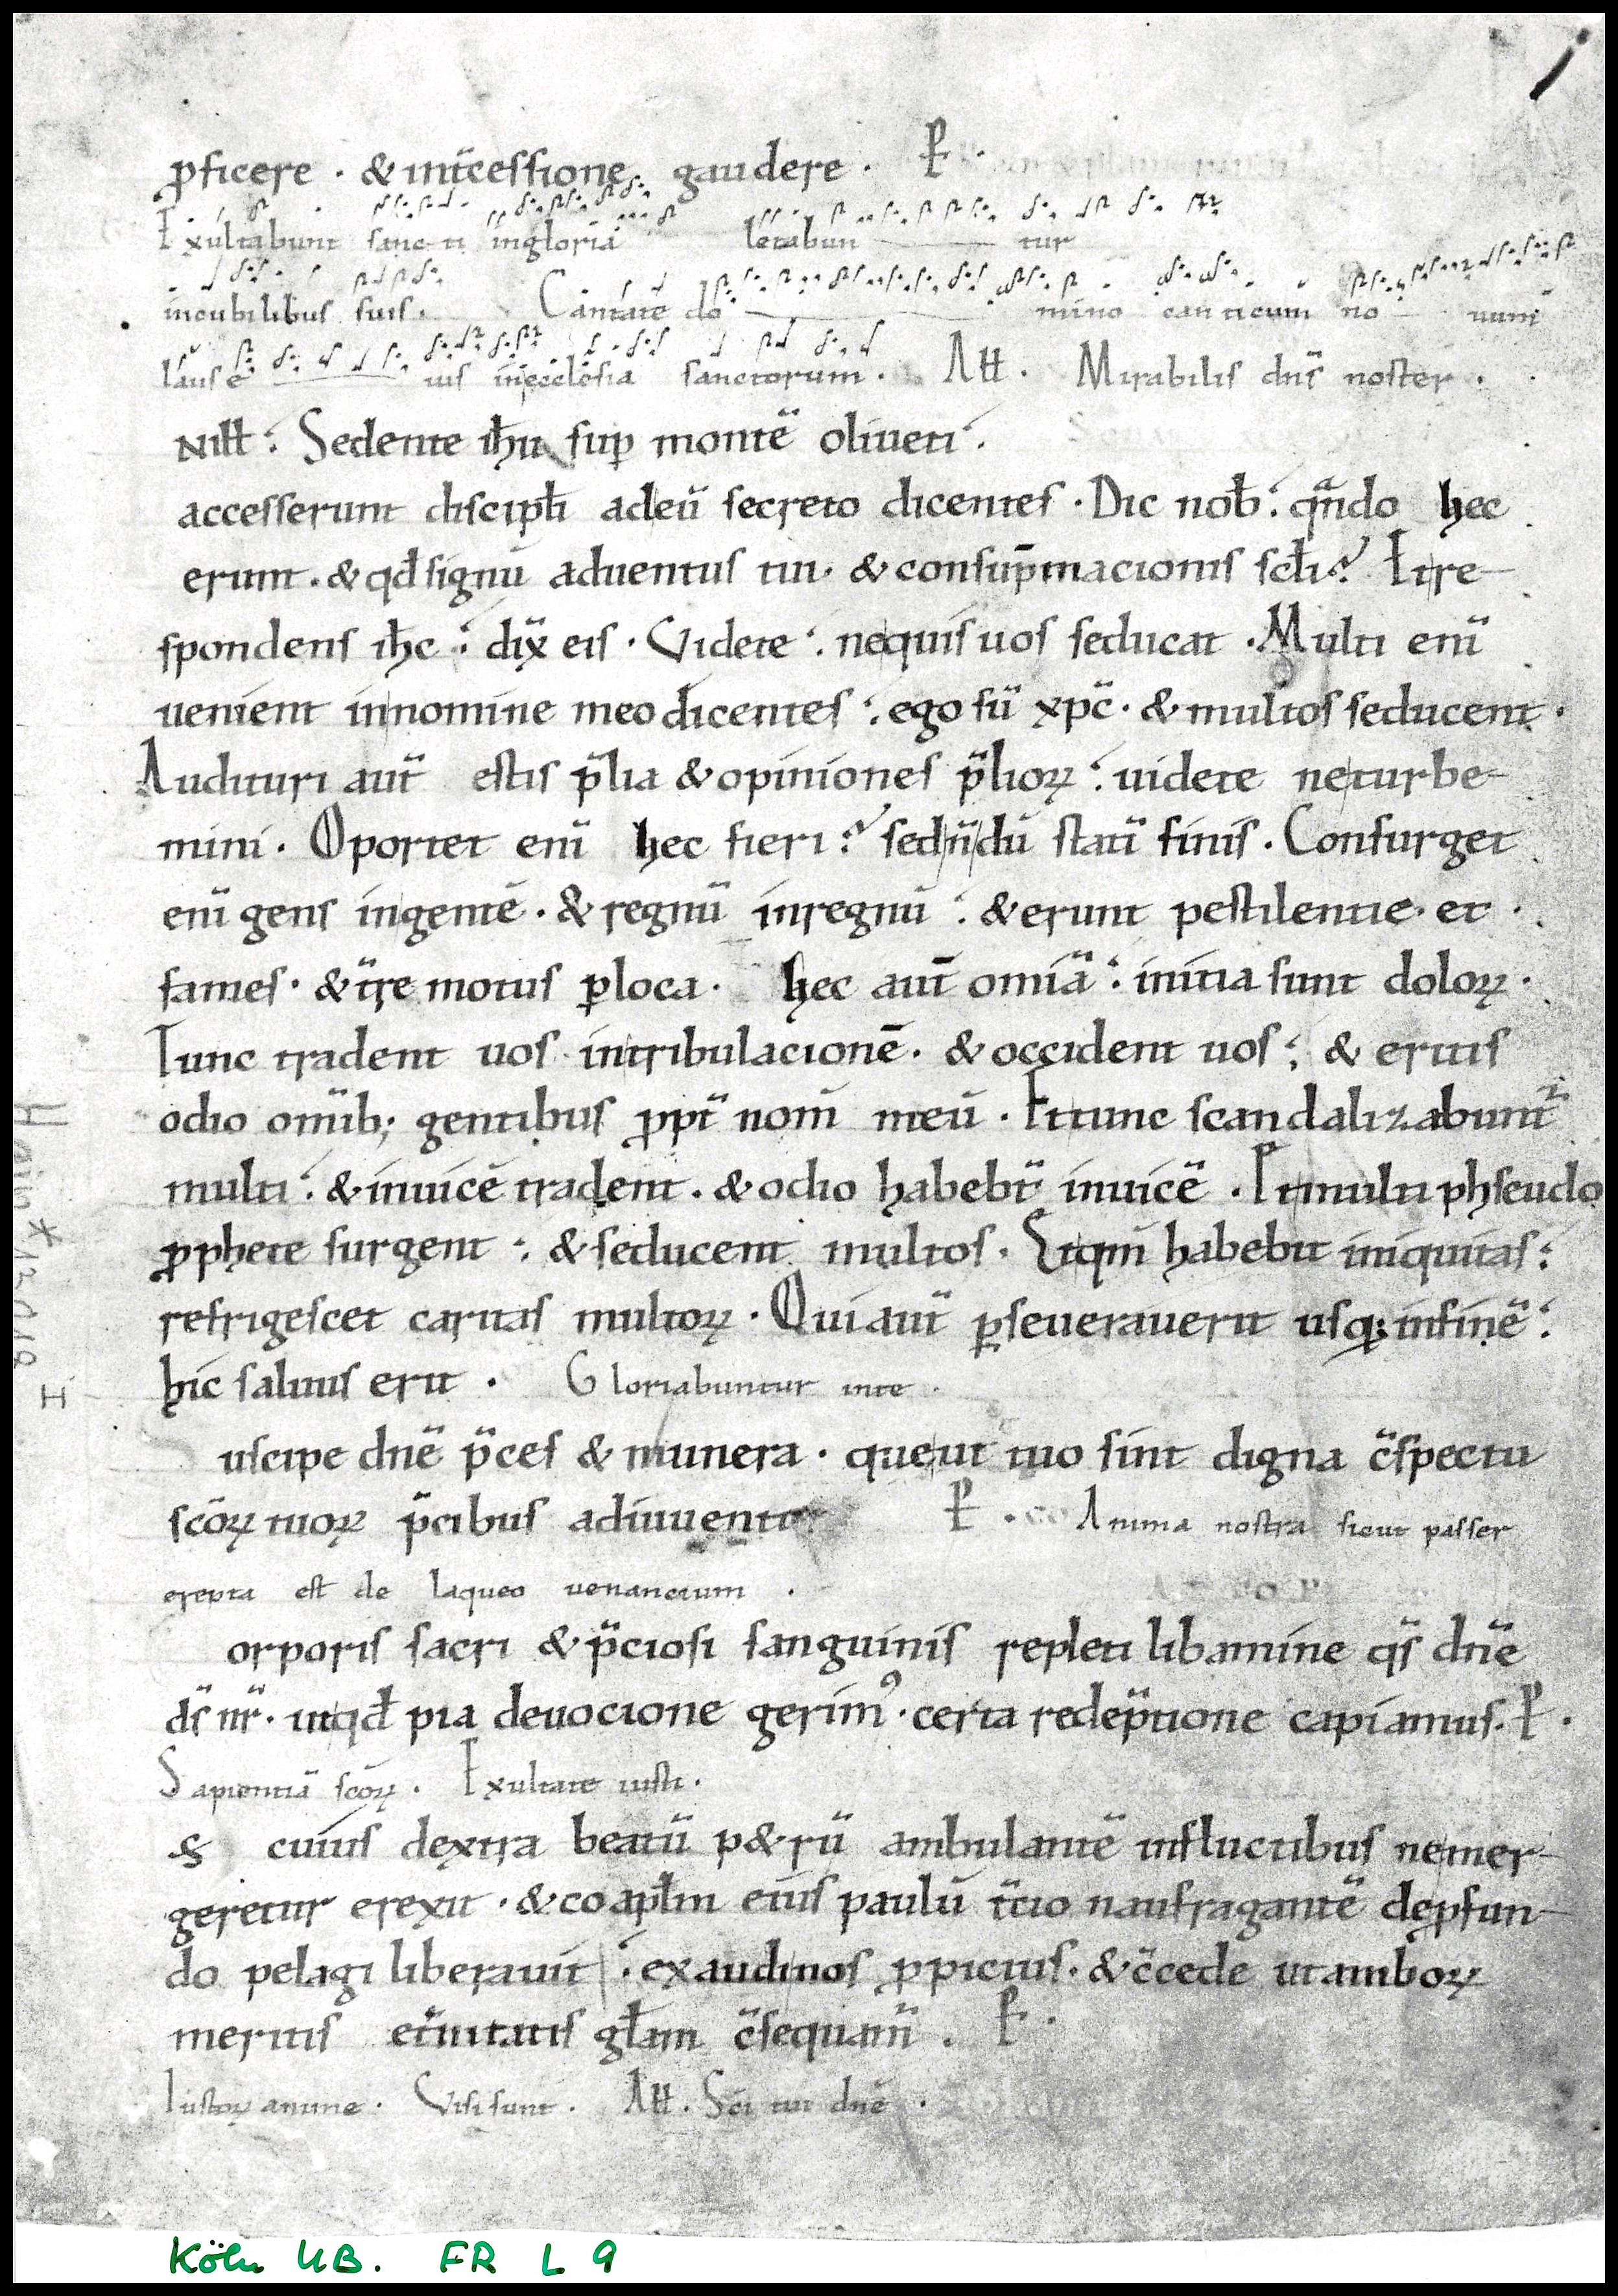 ꝓficere · & int̄cessione gaudere · P̵ ·
Exultabunt sancti ingloria letabun tur
incubilibus suis · Cantate do mino canticum no uum
laus e ius inecclesia sanctorum · All̵ · Mirabilis dn̄s noster ·
Nill̵ : Sedente ih̅u sup̱ montē oliueti :
accesserunt discipl̵i adeū secreto dicentes · Dic nob̵ : qn̄do hec
erunt · & qd̵ signū aduentus tui · & consūpmacionis scl̵i ? Et re-
spondens ih̅c : dix̄ eis · Videte : nequis uos seducat · Multi enī
uenient innomine meo dicentes : ego sū xp̄c · & multos seducent ·
Audituri aut̄ estis p̄lia & opiniones p̄lioꝝ : uidete neturbe-
mini · Oportet enī hec fieri ? sed n̄dū statī finis · Consurget
enī gens ingentē · & regnū inregnū : & erunt pestilentie · et ·
fames · & t̄re motus ꝑloca · hec aut̄ omīa : initia sunt doloꝝ ·
Tunc tradent uos intribulacionē · & occident uos : & eritis
odio omīb; gentibus ꝓpt̄ nom̄ meū · Et tunc scandalizabunt̄
multi : & inuicē tradent · & odio habebt̄ inuicē · Et multi phseudo
ꝓphete surgent : & seducent multos · Et qm̄ habebit iniquitas :
refrigescet caritas multoꝝ · Qui aut̄ ꝑseuerauerit usq; infinē :
hic saluus erit · Gloriabuntur inte ·
uscipe dn̄e p̄ces & munera · que ut tuo sint digna c̄spectu
scōꝝ tuoꝝ p̄cibus adiuuent̄ P̵ · co Anima nostra sicut passer
erepta est de laqueo uenancium ·
orporis sacri & p̄ciosi sanguinis repleti libamine qs̄ dn̄e
ds̄ nr̄ · ut qd̵ pia deuocione gerimꝰ · certa redēptione capiamus · P̵ ·
Sapientiā scōꝝ · Exultate iusti ·
ds cuius dextra beatū p&rū ambulantē influctibus nemer-
geretur erexit · & coapl̵m eius paulū t̄cio naufragantē deꝓfun-
do pelagi liberauit : exaudi nos ꝓpicius · & c̄cede ut amboꝝ
meritis et̄nitatis gl̵am c̄sequam̄ · P̵ ·
Iustoꝝ anime · Visi sunt · All̵ · Sc̄i tui dn̄e ·
Köln UB. FR L 9